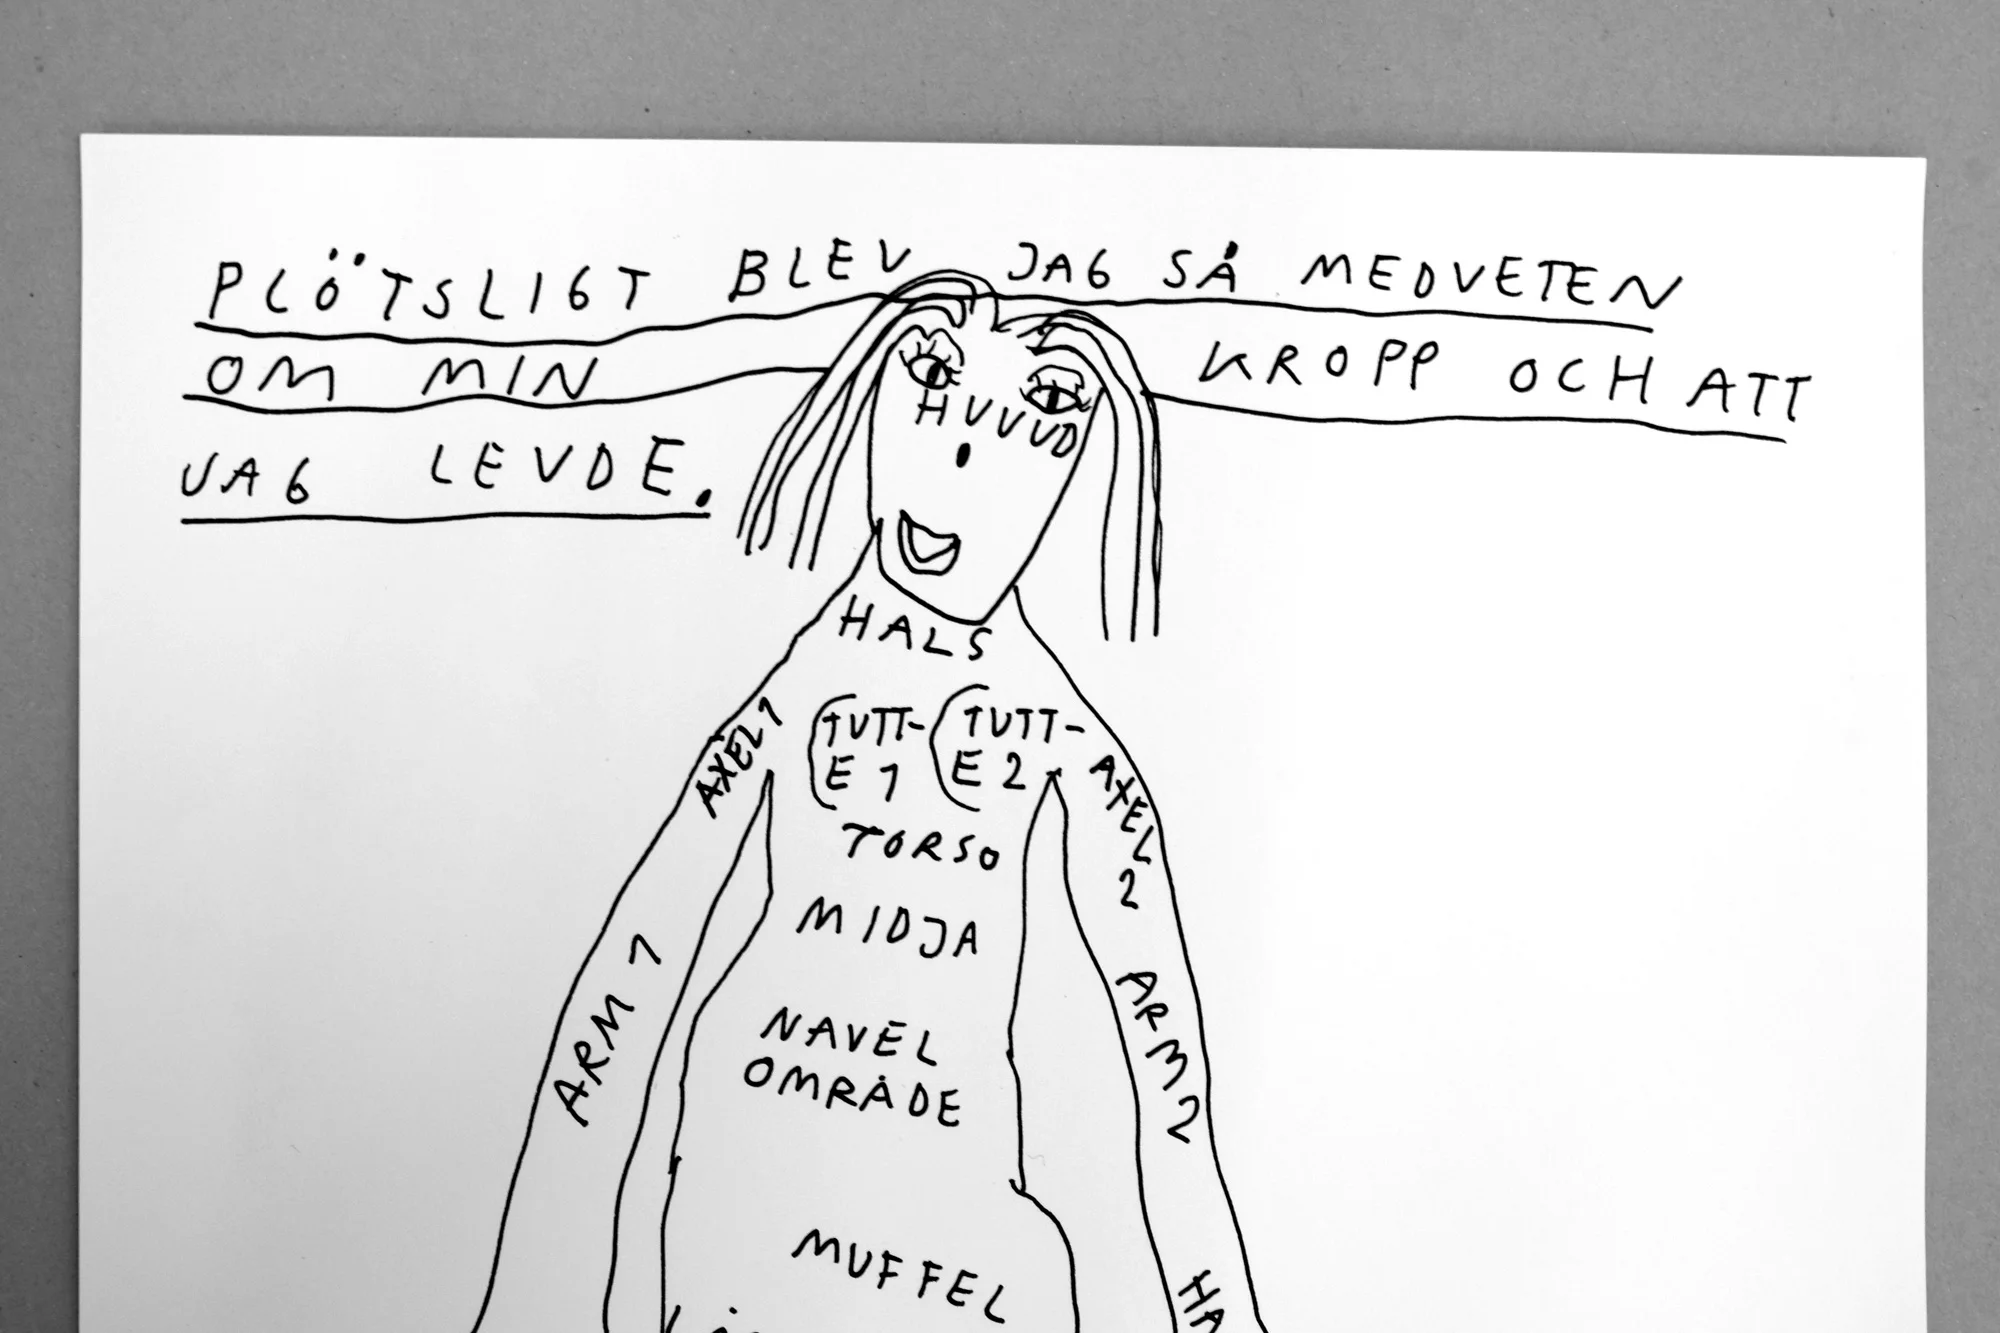 PLÖTSLIGT BLEV JAG SÅ MEDVETEN
OM MIN KROPP OCH ATT
JAG LEVDE.
HUVUD
HALS
AXEL 1
TUTT-
E 1
TUTT-
E 2
AXEL
2
TORSO
MIDJA
ARM 1
ARM 2
NAVEL
OMRÅDE
MUFFEL
HA